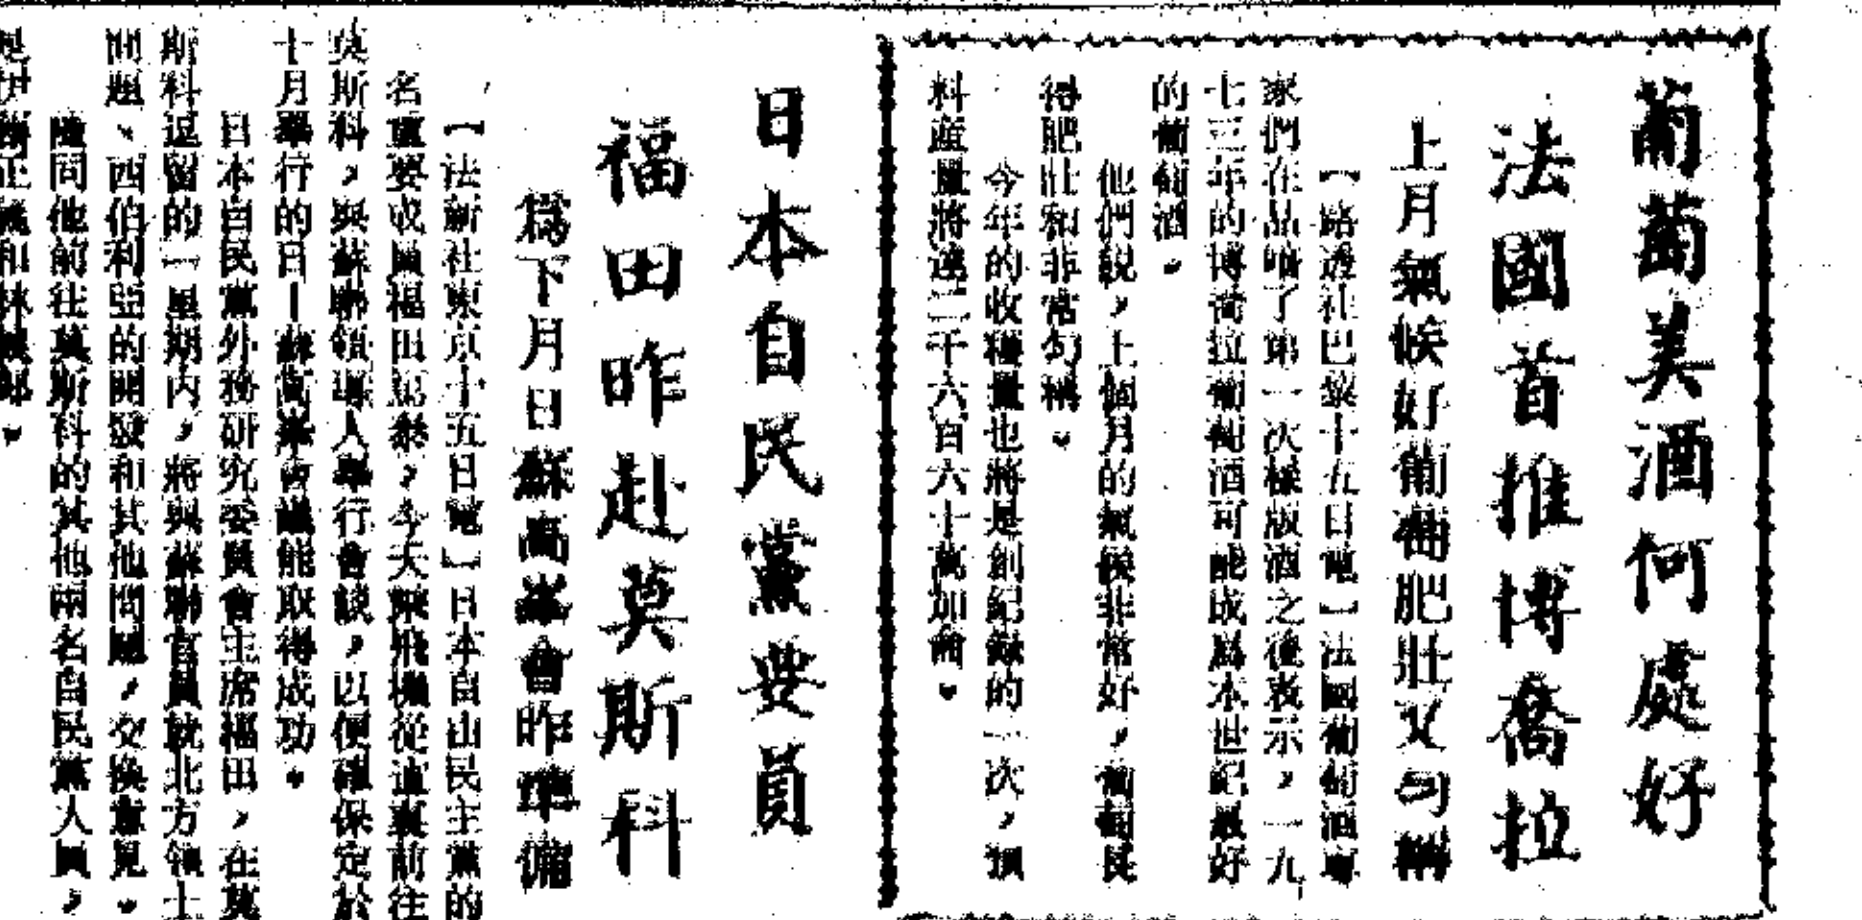 葡萄美酒何處好
法國首推博喬拉
上月氣候好葡萄肥壯又勻稱
【路透社巴黎十五日電】法國葡萄酒專
家們在品嚐了第一次樣版酒之後表示，一九
七三年的博喬拉葡萄酒可能成爲本世紀最好
的葡萄酒。
他們説，上個月的氣候非常好，葡萄長
得肥壯和非常勻稱。
今年的收穫量也將是創紀錄的一次，預
料產量將達二千六百六十萬加侖。
日本自民黨要員
福田昨赴莫斯科
爲下月日蘇高峯會昨準備
【法新社東京十五日電】日本自由民主黨的
名重要成員福田篤泰，今天乘飛機從這裏前往
莫斯科，與蘇聯領導人舉行會談，以便確保定於
十月舉行的日—蘇高峯會議能取得成功。
日本自民黨外務研究委員會主席福田，在莫
斯科逗留的一星期內，將與蘇聯官員就北方領土
問題、西伯利亞的開發和其他問題，交換意見。
隨同他前往莫斯科的其他兩名自民黨人員，
是伊 正義和林